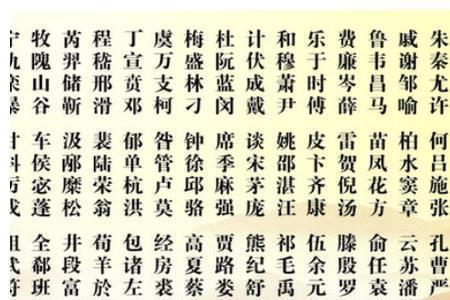 朱秦尤许 何吕施张 孔曹严
戚谢邹喻 柏水窦章 云苏潘
鲁韦昌马 苗凤花方 俞任袁
费廉岑薛 雷贺倪汤 滕殷罗
乐于时傅 皮卞齐康 伍余元
和穆萧尹 姚邵湛汪 祁毛禹
计伏成戴 谈宋茅庞 熊纪舒
杜阮蓝闵 席季麻强 贾路娄
梅盛林刁 钟徐邱骆 高夏蔡
虞万支柯 昝管卢莫 经房裘
丁宣贲邓 郁单杭洪 包诸左
程嵇邢滑 裴陆荣翁 荀羊於
芮羿储靳 汲邴糜松 井段富
牧隗山谷 车侯宓蓬 全郗班